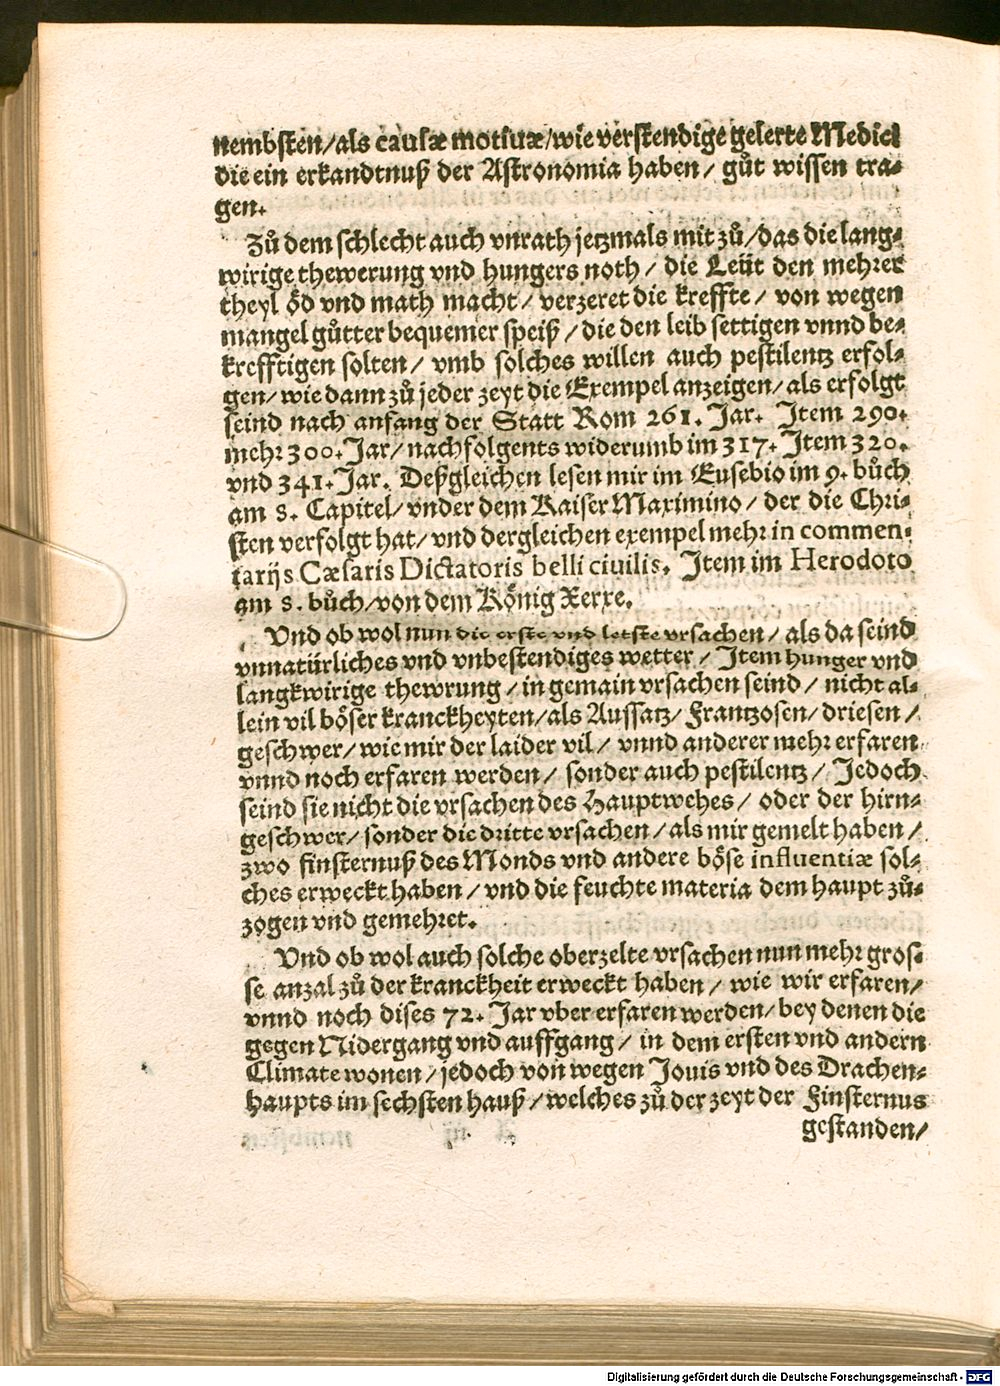 nembsten/als causæ motiuæ/wie verstendige gelerte Medici
die ein erkandtnuß der Astronomia haben/ gůt wissen tra⸗
gen.
Zů dem schlecht auch vnrath jetzmals mit zů/das die lang⸗
wirige thewerung vnd hungers noth/ die Leüt den mehrer
theyl öd vnd math macht/ verzeret die kreffte/ von wegen
mangel gůtter bequemer speiß/die den leib settigen vnnd be⸗
krefftigen solten/ vmb solches willen auch pestilentz erfol⸗
gen/wie dann zů jeder zeyt die Exempel anzeigen/als erfolgt
seind nach anfang der Statt Rom 261. Jar. Item 290.
mehr 300. Jar/ nachfolgents widerumb im 317. Item 320.
vnd 341. Jar. Deßgleichen lesen mir im Eusebio im 9. bůch
am 8. Capitel/ vnder dem Kaiser Maximino/ der die Chri⸗
sten verfolgt hat/ vnd dergleichen exempel mehr in commen⸗
tarijs Cæsaris Dictatoris belli ciuilis. Item im Herodoto
am 8. bůch/von dem König Xerxe.
Vnd ob wol nun die erste vnd letste vrsachen/ als da seind
vnnatürliches vnd vnbestendiges wetter/ Item hunger vnd
langkwirige thewrung/in gemain vrsachen seind/ nicht al⸗
lein vil böser kranckheyten/als Aussatz/ Frantzosen/driesen/
geschwer/wie mir der laider vil/ vnnd anderer mehr erfaren
vnnd noch erfaren werden/ sonder auch pestilentz/ Jedoch
seind sie nicht die vrsachen des Hauptwehes/ oder der hirn⸗
geschwer/sonder die dritte vrsachen/als mir gemelt haben/
zwo finsternuß des Monds vnd andere böse influentiæ sol⸗
ches erweckt haben/ vnd die feuchte materia dem haupt zů⸗
zogen vnd gemehret.
Vnd ob wol auch solche oberzelte vrsachen nun mehr gros⸗
se anzal zů der kranckheit erweckt haben/ wie wir erfaren/
vnnd noch dises 72. Jar vber erfaren werden/bey denen die
gegen Nidergang vnd auffgang/ in dem ersten vnd andern
Climate wonen/jedoch von wegen Jouis vnd des Drachen⸗
haupts im sechsten hauß/welches zů der zeyt der Finsternus
gestanden/
Digitalisierung gefördert durch die Deutsche Forschungsgemeinschaft - DFG